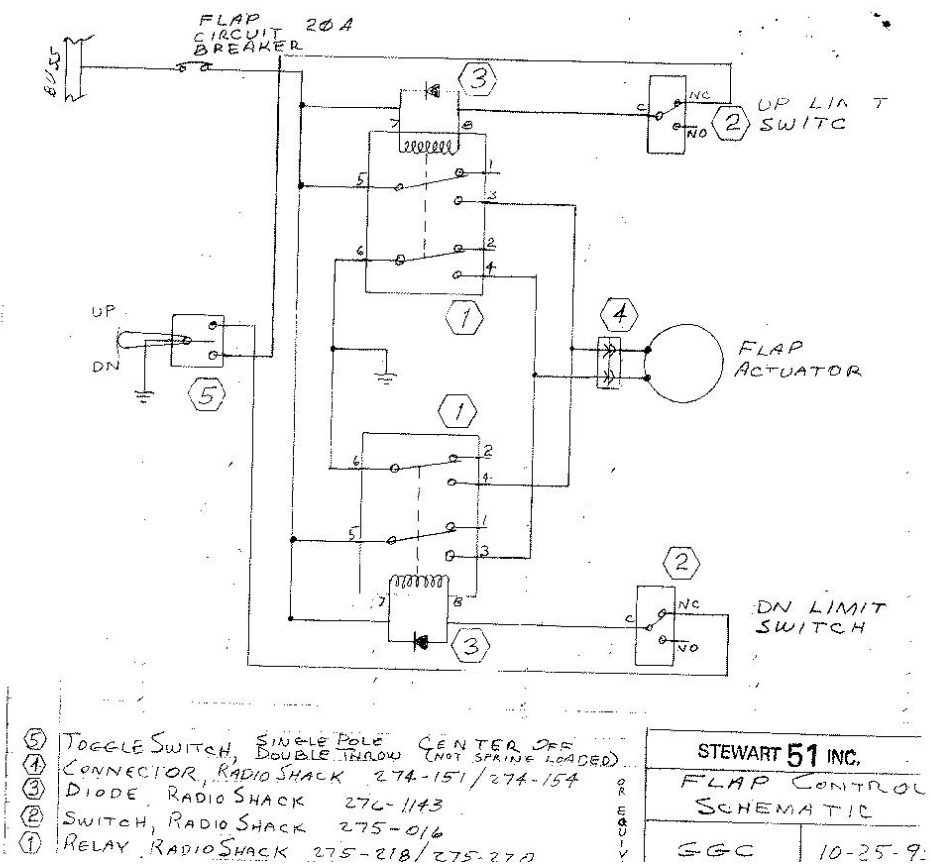 FLAP 20A
CIRCUIT
BREAKER
BUSS
3
7
8
C
NC
NO
2
UP LIM T
SWITC
5
1
3
6
2
4
1
UP
DN
5
4
FLAP
ACTUATOR
1
6
2
4
5
1
3
7
8
3
2
C
NC
NO
DN LIMIT
SWITCH
5 TOGGLE SWITCH, SINGLE POLE CENTER OFF
DOUBLE THROW (NOT SPRING LOADED)
4 CONNECTOR, RADIO SHACK 274-151/274-154
3 DIODE, RADIO SHACK 276-1143
2 SWITCH, RADIO SHACK 275-016
1 RELAY RADIO SHACK 275-218/275-220
OR EQUIV
STEWART 51 INC.
FLAP CONTROL
SCHEMATIC
GGC
10-25-9